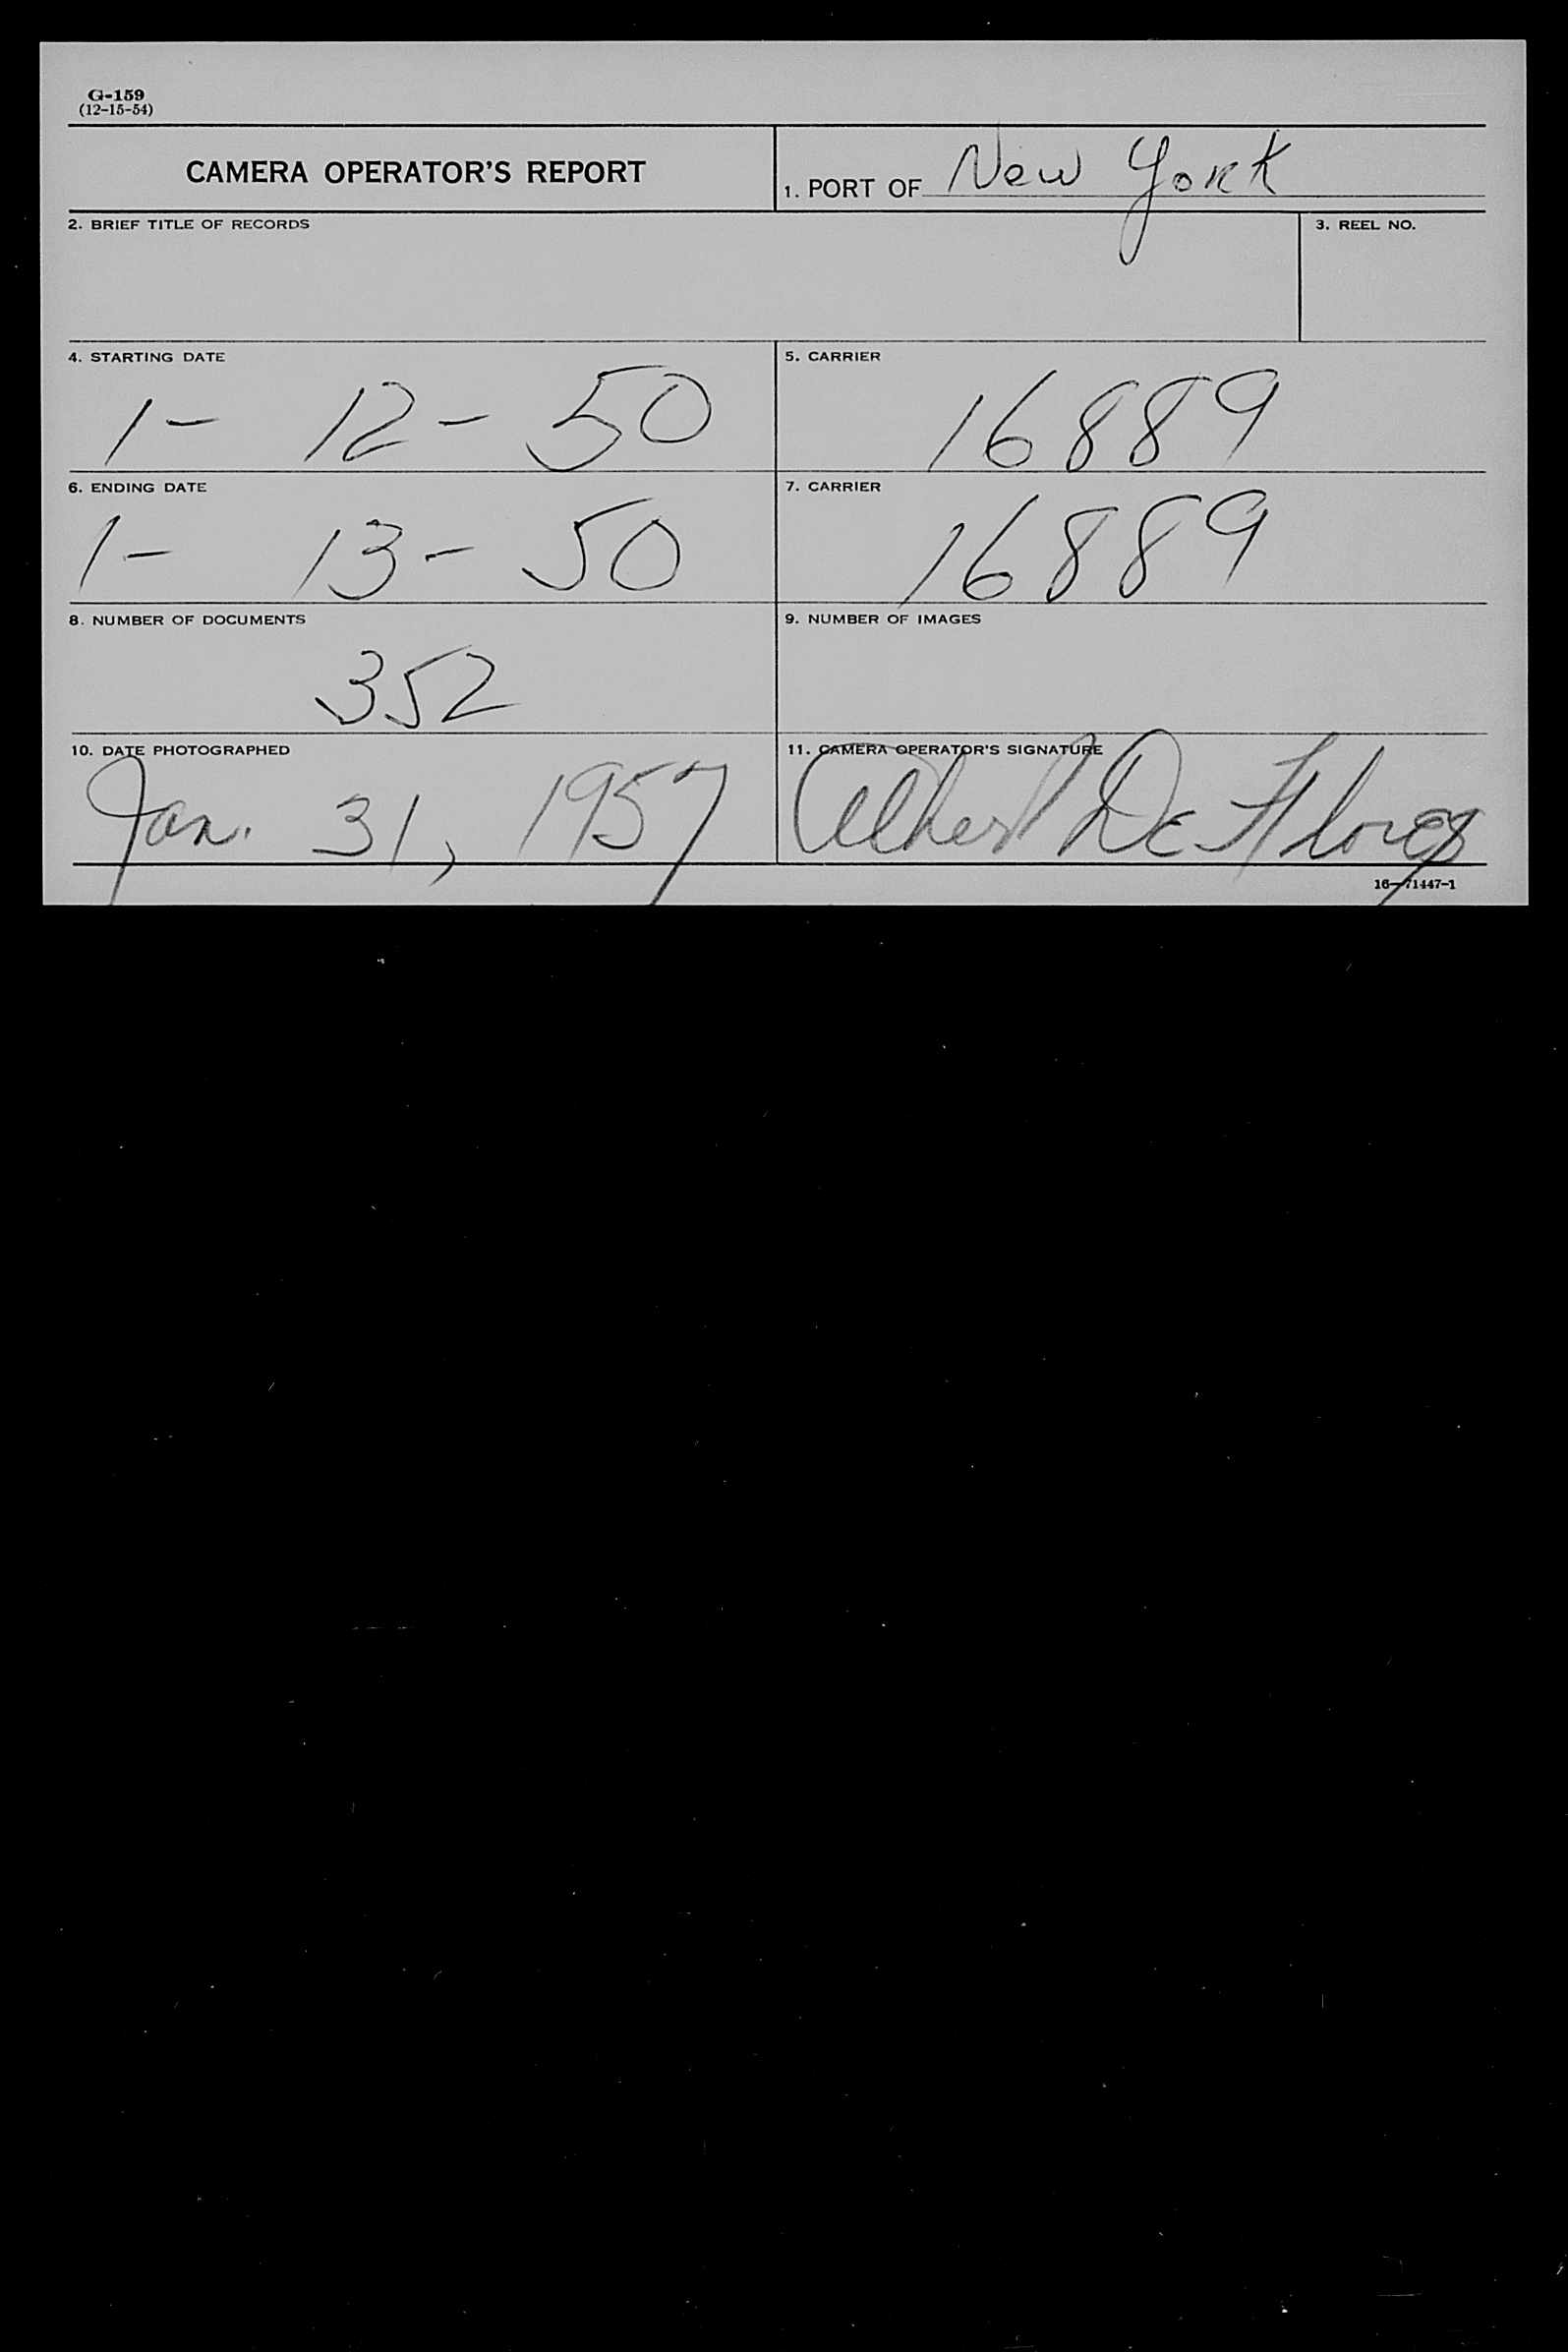 G-159
(12-15-54)
CAMERA OPERATOR'S REPORT
1. PORT OF New York
2. BRIEF TITLE OF RECORDS
3. REEL NO.
4. STARTING DATE
1- 12- 50
5. CARRIER
16889
6. ENDING DATE
1- 13- 50
7. CARRIER
16889
8. NUMBER OF DOCUMENTS
352
9. NUMBER OF IMAGES
10. DATE PHOTOGRAPHED
Jan. 31, 1957
11. CAMERA OPERATOR'S SIGNATURE
Albert De
16—71447-1